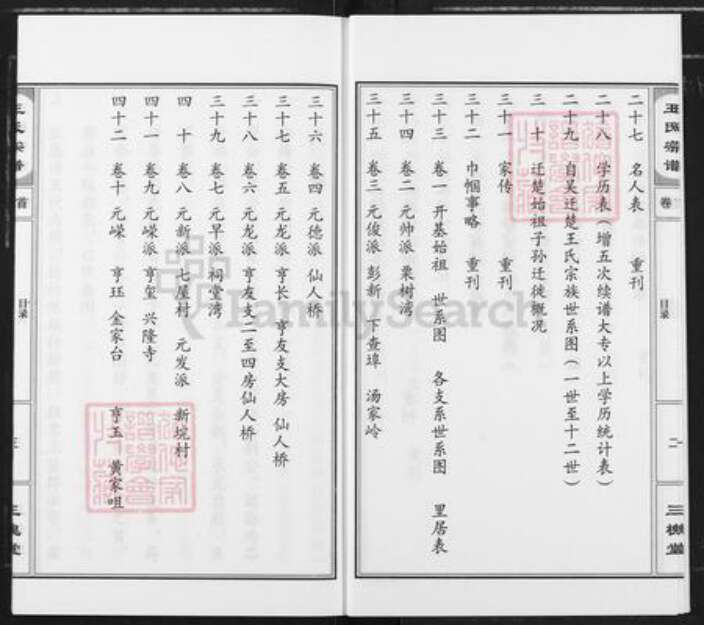 王氏宗谱
卷
目录
二
三槐堂
二十七 名人表 重刊
二十八 学历表（增五次续谱大专以上学历统计表）
二十九 自吴迁楚王氏宗族世系图（一世至十二世）
三十 迁楚始祖子孙迁徙概况
三十一 家传 重刊
三十二 巾帼事略 重刊
三十三 卷一 开基始祖 世系图 各支系世系图 里居表
三十四 卷二 元帅派 栗树湾
三十五 卷三 元俊派 彭新 下查埠 汤家岭
三十六 卷四 元德派 仙人桥
三十七 卷五 元龙派 亨长 亨友支大房 仙人桥
三十八 卷六 元龙派 亨友支二至四房仙人桥
三十九 卷七 元早派 祠堂湾
四十 卷八 元新派 七屋村 元发派 新坑村
四十一 卷九 元嵘派 亨玺 兴隆寺
四十二 卷十 元嵘 亨珏 金家台 亨玉 黄家咀
王氏宗谱
首
目录
三
三槐堂
FamilySearch